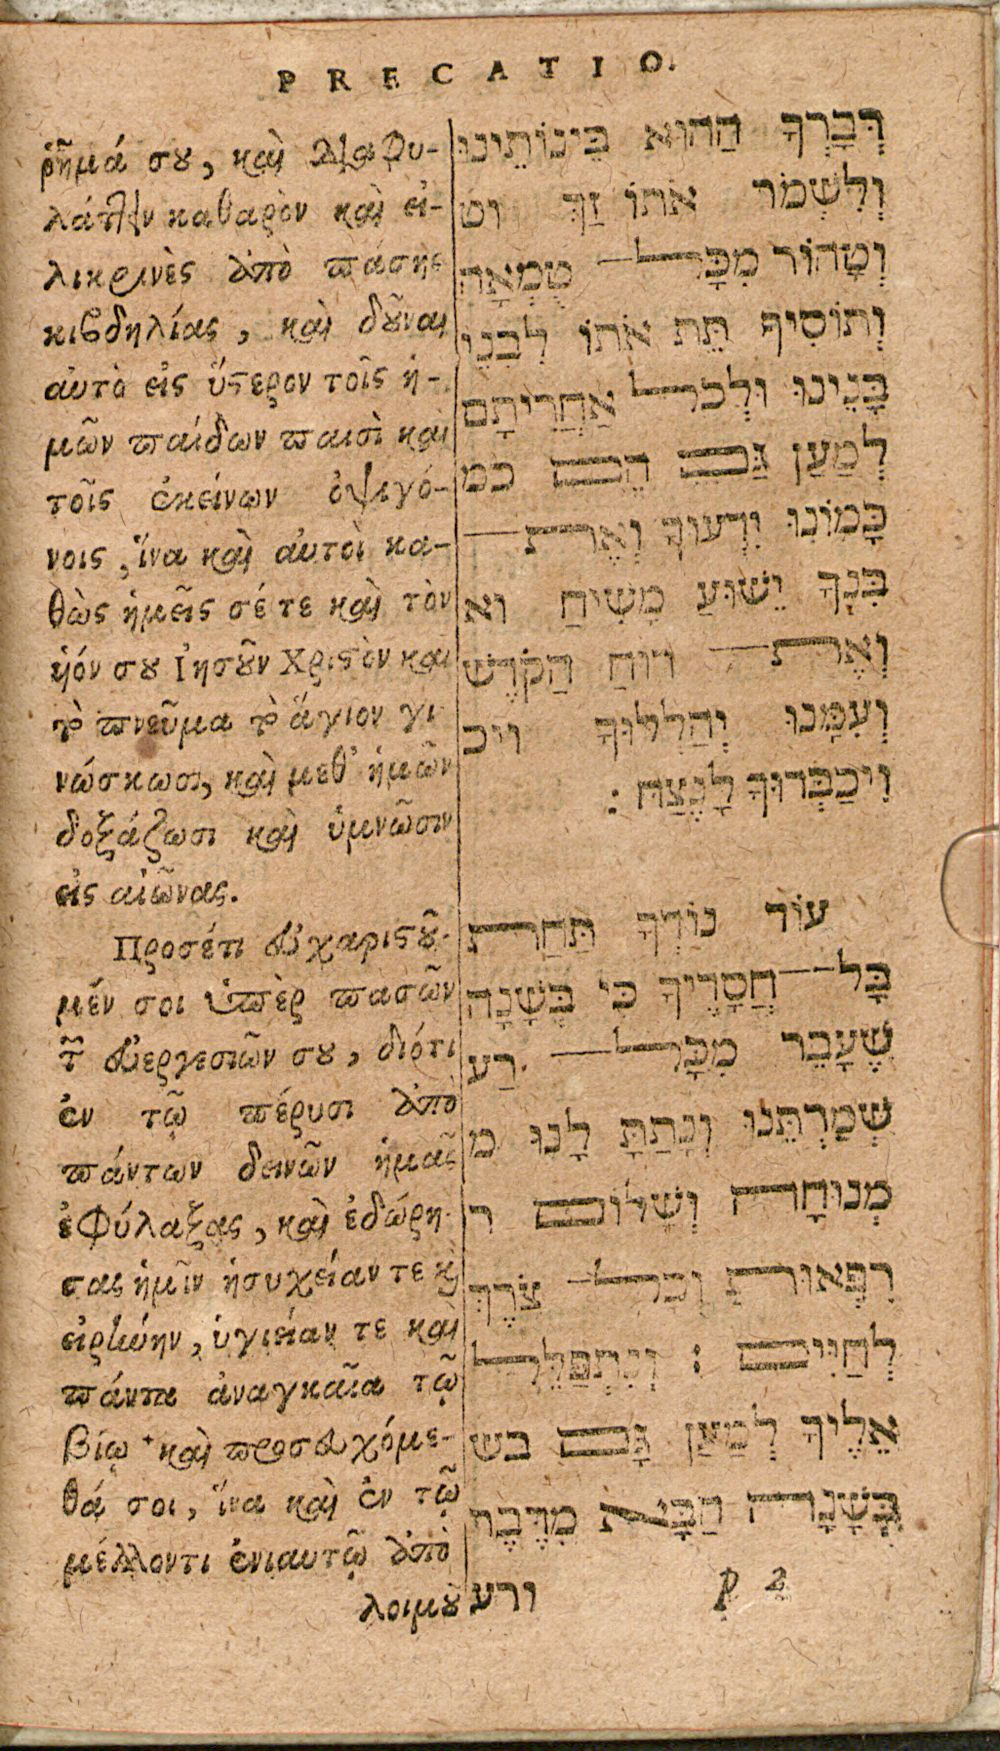 PRECATIO.
ῥῆμά σου, καὶ διαφυ-
λάττειν καθαρὸν καὶ εἰ-
λικρινὲς ἀπὸ πάσης
κιβδηλίας, καὶ δοῦναι
αὐτὸ εἰς ὕστερον τοῖς ἡ-
μῶν παίδων παισὶ καὶ
τοῖς ἐκείνων ὀψιγό-
νοις, ἵνα καὶ αὐτοὶ κα-
θὼς ἡμεῖς σέ τε καὶ τὸν
ὑόν σου Ἰησοῦν Χριστὸν καὶ
τὸ πνεῦμα τὸ ἅγιον γι
νώσκωσι, καὶ μεθ' ἡμῶν
δοξάζωσι καὶ ὑμνῶσιν
εἰς αἰῶνας.
Προσέτι εὐχαριστοῦ-
μέν σοι ὑπὲρ πασῶν
τῶν εὐεργεσιῶν σου, διότι
ἐν τῷ πέρυσι ἀπὸ
πάντων δεινῶν ἡμᾶς
ἐφύλαξας, καὶ ἐδώρη-
σας ἡμῖν ἡσυχείαν τε καὶ
εἰρήνην, ὑγιείαν τε καὶ
πάντα ἀναγκαῖα τῷ
βίῳ· καὶ προσευχόμε-
θά σοι, ἵνα καὶ ἐν τῷ
μέλλοντι ἐνιαυτῷ ἀπὸ
λοιμοῦ
דְּבָרְךָ הַהוּא בֵּינוֹתֵינוּ
וְלִשְׁמֹר אֹתוֹ זַךְ וט
וְטָהוֹר מִכָּל טֻמְאָה
וְתוֹסִיף תֵּת אֹתוֹ לִבְנֵי
בָּנֵינוּ וּלְכֹל אַחֲרִיתָם
לְמַעַן גַּם הֵם כמ
כָּמוֹנוּ יֵדְעוּךָ וְאֶת
בִּנְךָ יֵשׁוּעַ מָשִׁיחַ וא
וְאֶת רוּחַ הַקֹּדֶשׁ
וְעִמָּנוּ יְהַלִלוּךָ ויכ
וִיכַבְּדוּךָ לָנֶצַח :
עוֹד נוֹדְךָ תַּחַת
כָּל חֲסָדֶיךָ כִּי בְּשָׁנָה
שֶׁעָבַר מִכָּל רַע
שְׁמַרְתֵּנוּ וְנָתַתָּ לָנוּ מ
מְנוּחָה וְשָׁלוֹם ר
רִפְאוּת וְכָל צֹרֶךְ
לְחַיִּים : וְנִתְפַּלֵּל
אֵלֶיךָ לְמַעַן גָּם בש
בְּשָׁנָה הַבָּאָ מִדֶּבֶר
ורע
p 2